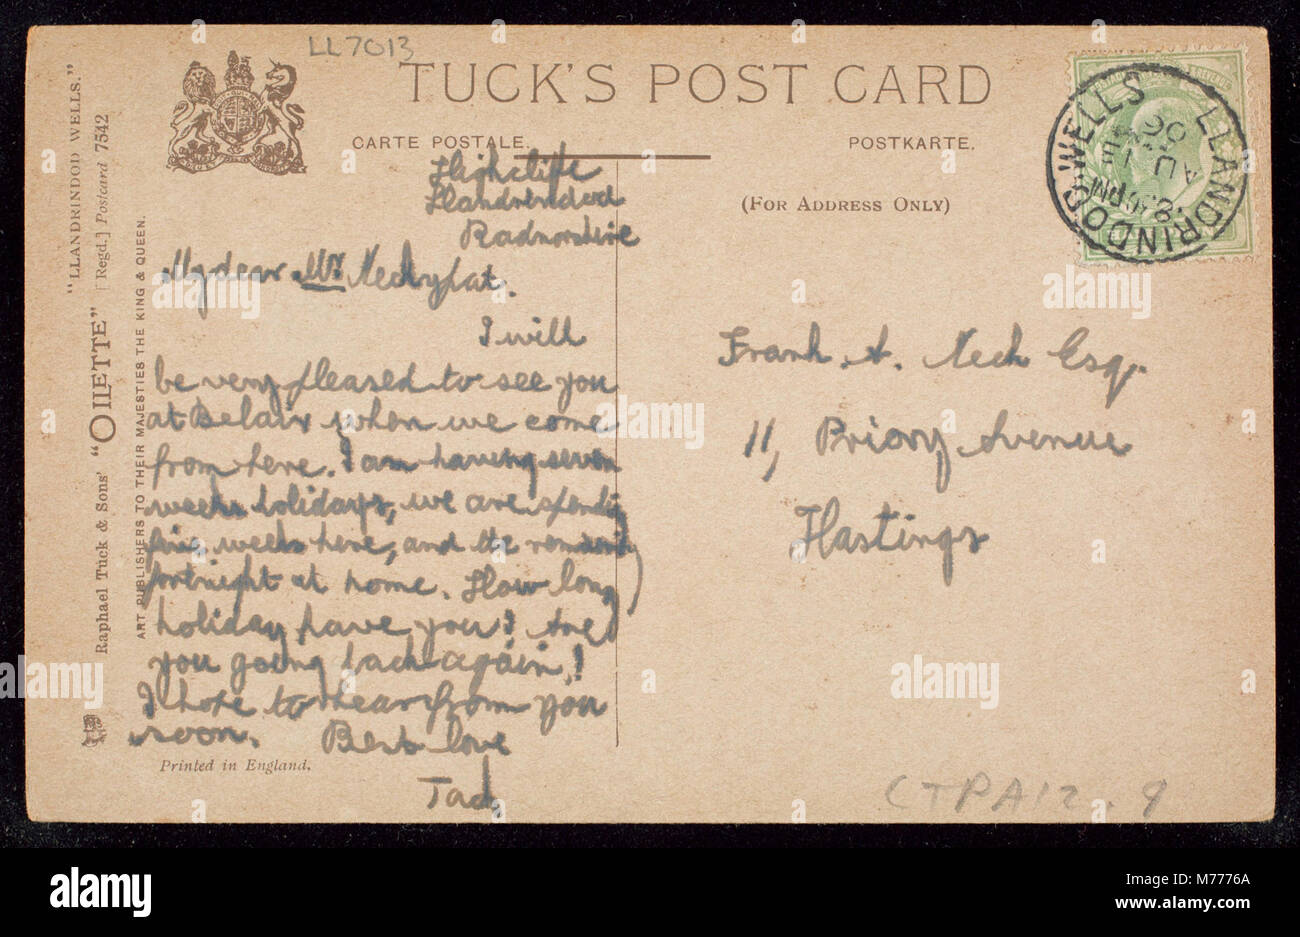 LL7013
TUCK'S POST CARD
CARTE POSTALE.
POSTKARTE.
(FOR ADDRESS ONLY)
"LLANDRINDOD WELLS."
Raphael Tuck & Sons' "OILETTE" [Regd.] Postcard 7542
ART PUBLISHERS TO THEIR MAJESTIES THE KING & QUEEN.
LLANDRINDOD WELLS
8.40 PM
AU 1
06
Highcliffe
Llandrindod
Radnorshire
My dear Mr Neckyfat.
I will
be very pleased to see you
at Belair when we come
from here. I am having seven
weeks holidays, we are spending
five weeks here, and the remaining
fortnight at home. How long
holiday have you? Are
you going back again?
I hope to hear from you
soon. Best love
Tad
Printed in England.
Frank A. Neck Esq.
11, Priory Avenue
Hastings
CTPA12.9
alamy
Image ID: M7776A
www.alamy.com